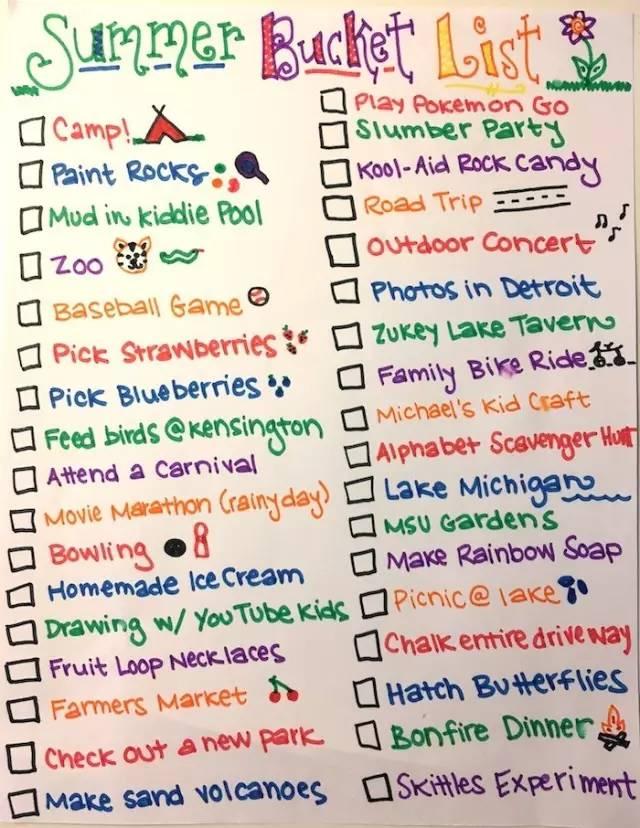 Summer Bucket List
Camp!
Paint Rocks
Mud in kiddie Pool
Zoo
Baseball Game
Pick Strawberries
Pick Blueberries
Feed birds @ Kensington
Attend a Carnival
Movie Marathon (rainy day)
Bowling
Homemade Ice Cream
Drawing w/ YouTube Kids
Fruit Loop Necklaces
Farmers Market
Check out a new park
Make sand volcanoes
Play Pokemon Go
Slumber Party
Kool-Aid Rock Candy
Road Trip
Outdoor Concert
Photos in Detroit
Zukey Lake Tavern
Family Bike Ride
Michael's Kid Craft
Alphabet Scavenger Hunt
Lake Michigan
MSU Gardens
Make Rainbow Soap
Picnic @ lake
Chalk entire driveway
Hatch Butterflies
Bonfire Dinner
Skittles Experiment